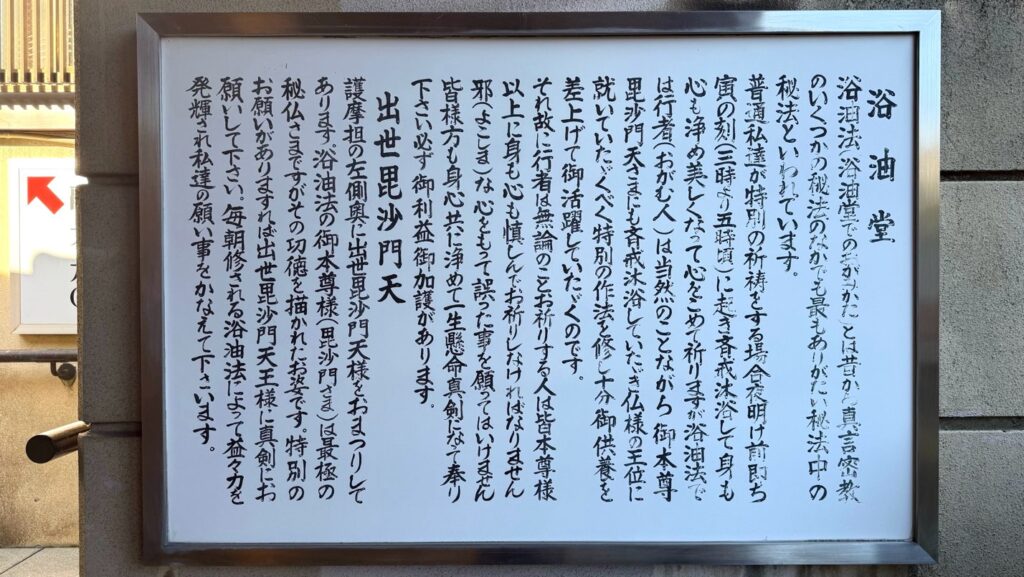 浴油堂
浴油法、浴油堂でのおがみかたとは昔から真言密教
のいくつかの秘法のなかでも最もありがたい秘法中の
秘法といわれています。
普通私達が特別の祈祷をする場合夜明け前即ち
寅の刻(三時より五時頃)に起き斉戒沐浴して身も
心も浄め美しくなって心をこめて祈りますが浴油法で
は行者(おがむ人)は当然のことながら御本尊
毘沙門天さまにも斉戒沐浴していたゞき仏様の王位に
就いていたゞくべく特別の作法を修し十分御供養を
差上げて御活躍していたゞくのです。
それ故に行者は無論のことお祈りする人は皆本尊様
以上に身も心も慎しんでお祈りしなければなりません
邪(よこしま)な心をもって誤った事を願ってはいけません
皆様方も身心共に浄めて一生懸命真剣になって奉り
下さい必ず御利益御加護があります。
出世毘沙門天
護摩担の左側奥に出世毘沙門天様をおまつりして
あります。浴油法の御本尊様(毘沙門さま)は最極の
秘仏さまですがその功徳を描かれたお姿です。特別の
お願いがありますれば出世毘沙門天王様に真剣にお
願いして下さい。毎朝修される浴油法によって益々力を
発輝され私達の願い事をかなえて下さいます。